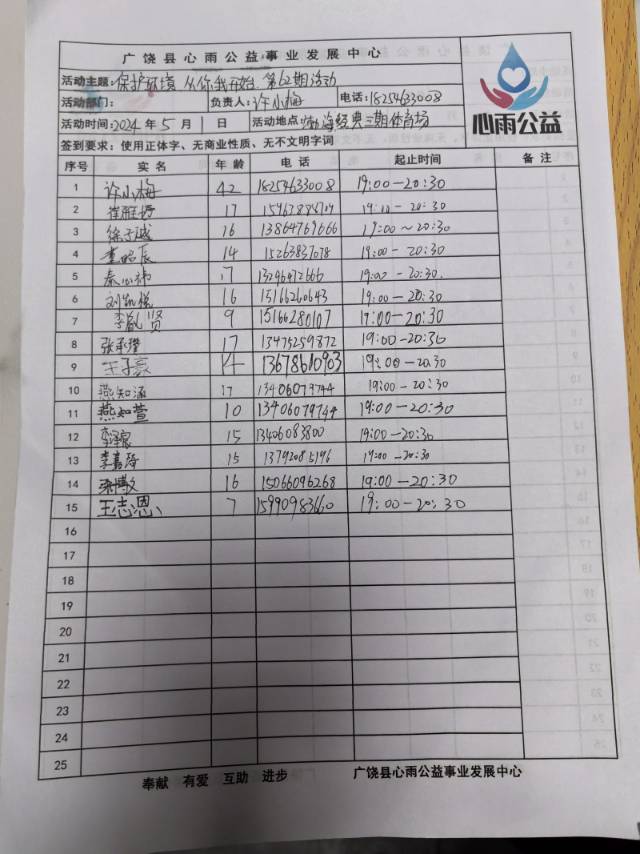 广饶县心雨公益事业发展中心
心雨公益
活动主题: 保护环境 从你我开始 第62期活动
活动部门: 负责人: 许小梅 电话: 18254633008
活动时间: 2024 年 5 月 1 日 活动地点: 渤海经典三期体育场
签到要求: 使用正体字、无商业性质、无不文明字词
序号 实名 年龄 电话 起止时间 备注
1 许小梅 42 18254633008 19:00-20:30
2 17 20:30
3 徐子诚 16 13864769666 19:00~20:30
4 14 15263837078 19:00-20:30
5 17 13296472666 19:00-20:30
6 16 15166260643 19:00-20:30
7 9 15166280107 19:00-20:30
8 17 13475259872 19:00-20:30
9 王子豪 14 13678610903 19:00-20:30
10 燕知涵 17 13406079744 19:00-20:30
11 燕知萱 10 13406079744 19:00-20:30
12 15 13406083800 19:00-20:30
13 15 19:00-20:30
14 16 15066096268 19:00-20:30
15 王志恩 7 15990983660 19:00-20:30
16
17
18
19
20
21
22
23
24
25
奉献 有爱 互助 进步 广饶县心雨公益事业发展中心